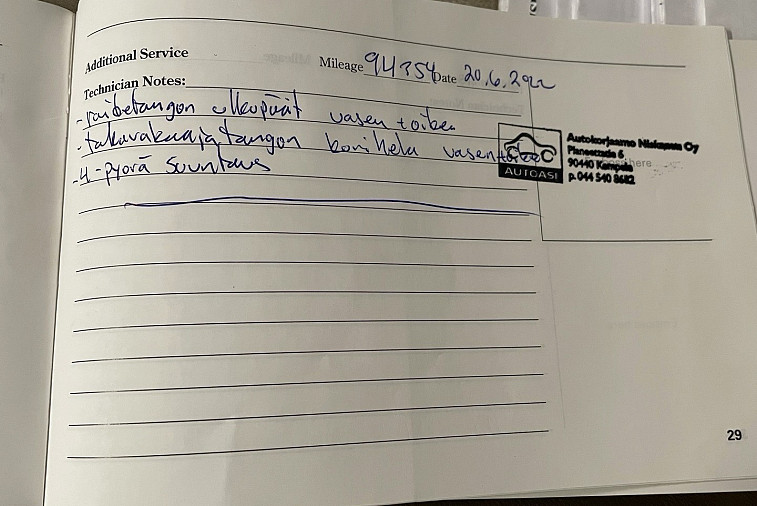 Additional Service
Mileage 94354 Date 20.6.2022
Technician Notes:
- raidetangon ulkopäät vasen+oikea
- takavakaajatangon korihela vasen+oikea
- 4-pyörä suuntaus
AUTOASI
Autokorjaamo Niskanen Oy
6
90440 Kempele
p. 044 540 8682
here
29